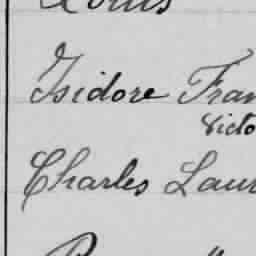 Louis
Isidore Fran
Victo
Charles Laur